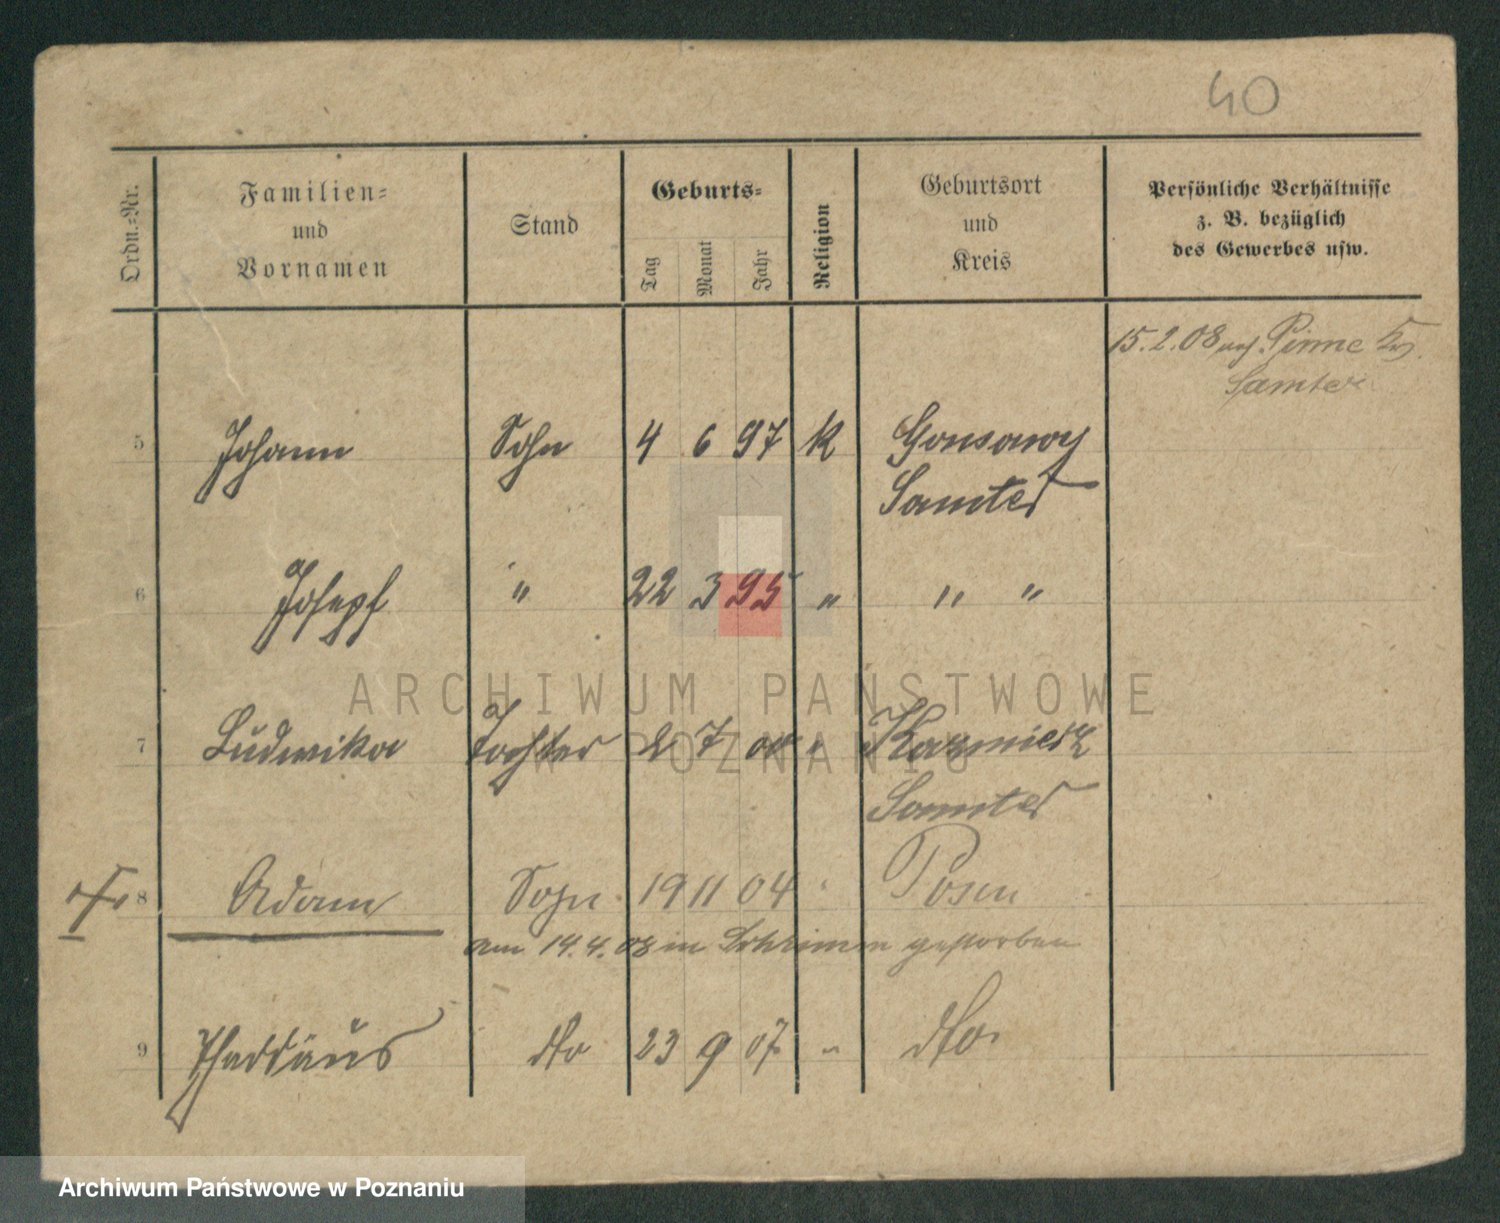 40
Ordn.=Nr.
Familien=
und
Vornamen
Stand
Geburts=
Tag
Monat
Jahr
Religion
Geburtsort
und
Kreis
Persönliche Verhältnisse
z. B. bezüglich
des Gewerbes usw.
15.2.08 Pinne
Samter
5 Johann Sohn 4 6 97 K Gonsawy
Samter
6 Josepf " 22 3 95 " " "
7 Ludwika Tochter 2 7 00 " Kazmierz
Samter
8 Adam Sohn 19 11 04 " Posen
am 14.4.08 in Schrimm gestorben
9 Thaddäus dto 23 9 07 " dto.
ARCHIWUM PAŃSTWOWE
W POZNANIU
Archiwum Państwowe w Poznaniu